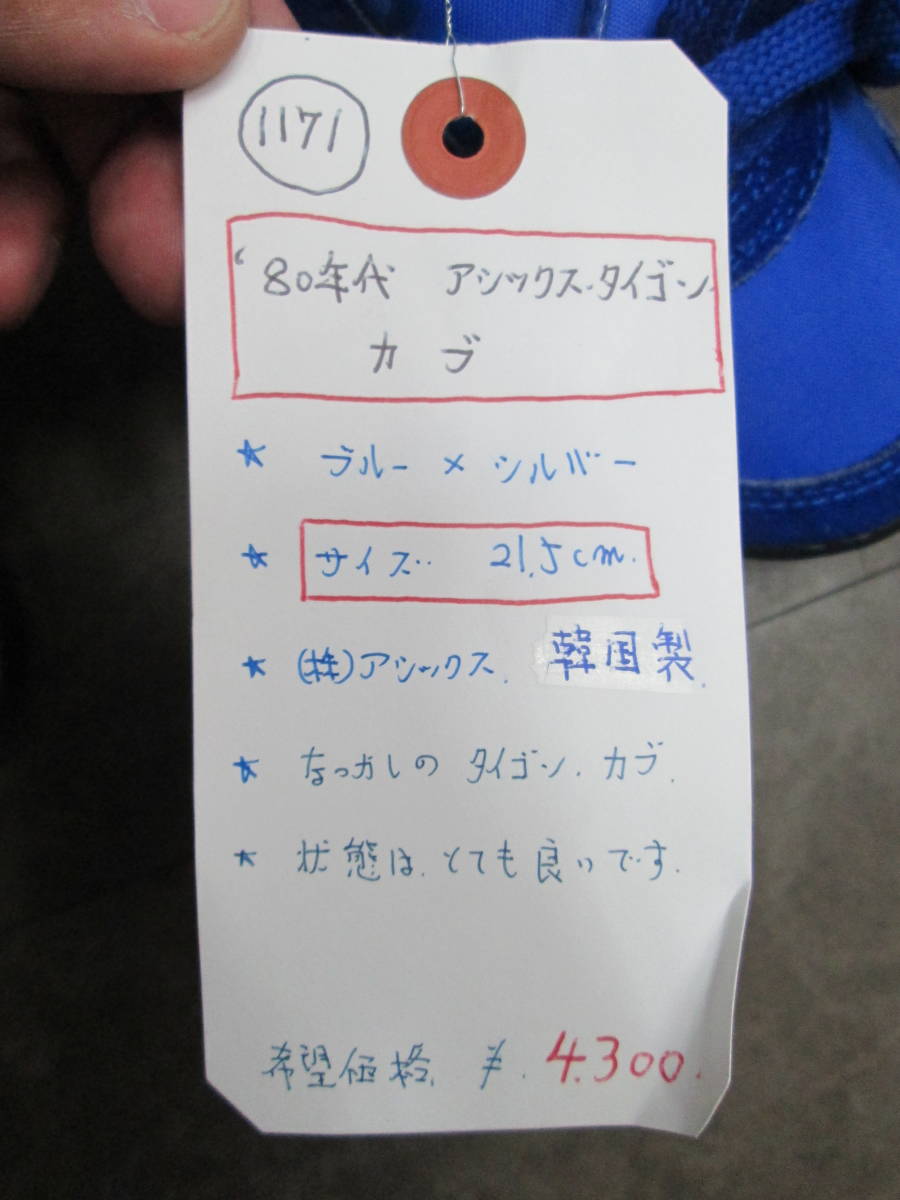 1171
'80年代 アシックス.タイゴン.
カブ
★ ブルー × シルバー
★ サイズ.. 21.5cm.
★ (株)アシックス. 韓国製.
★ なつかしの タイゴン. カブ.
★ 状態は. とても良いです.
希望価格. ¥. 4.300.